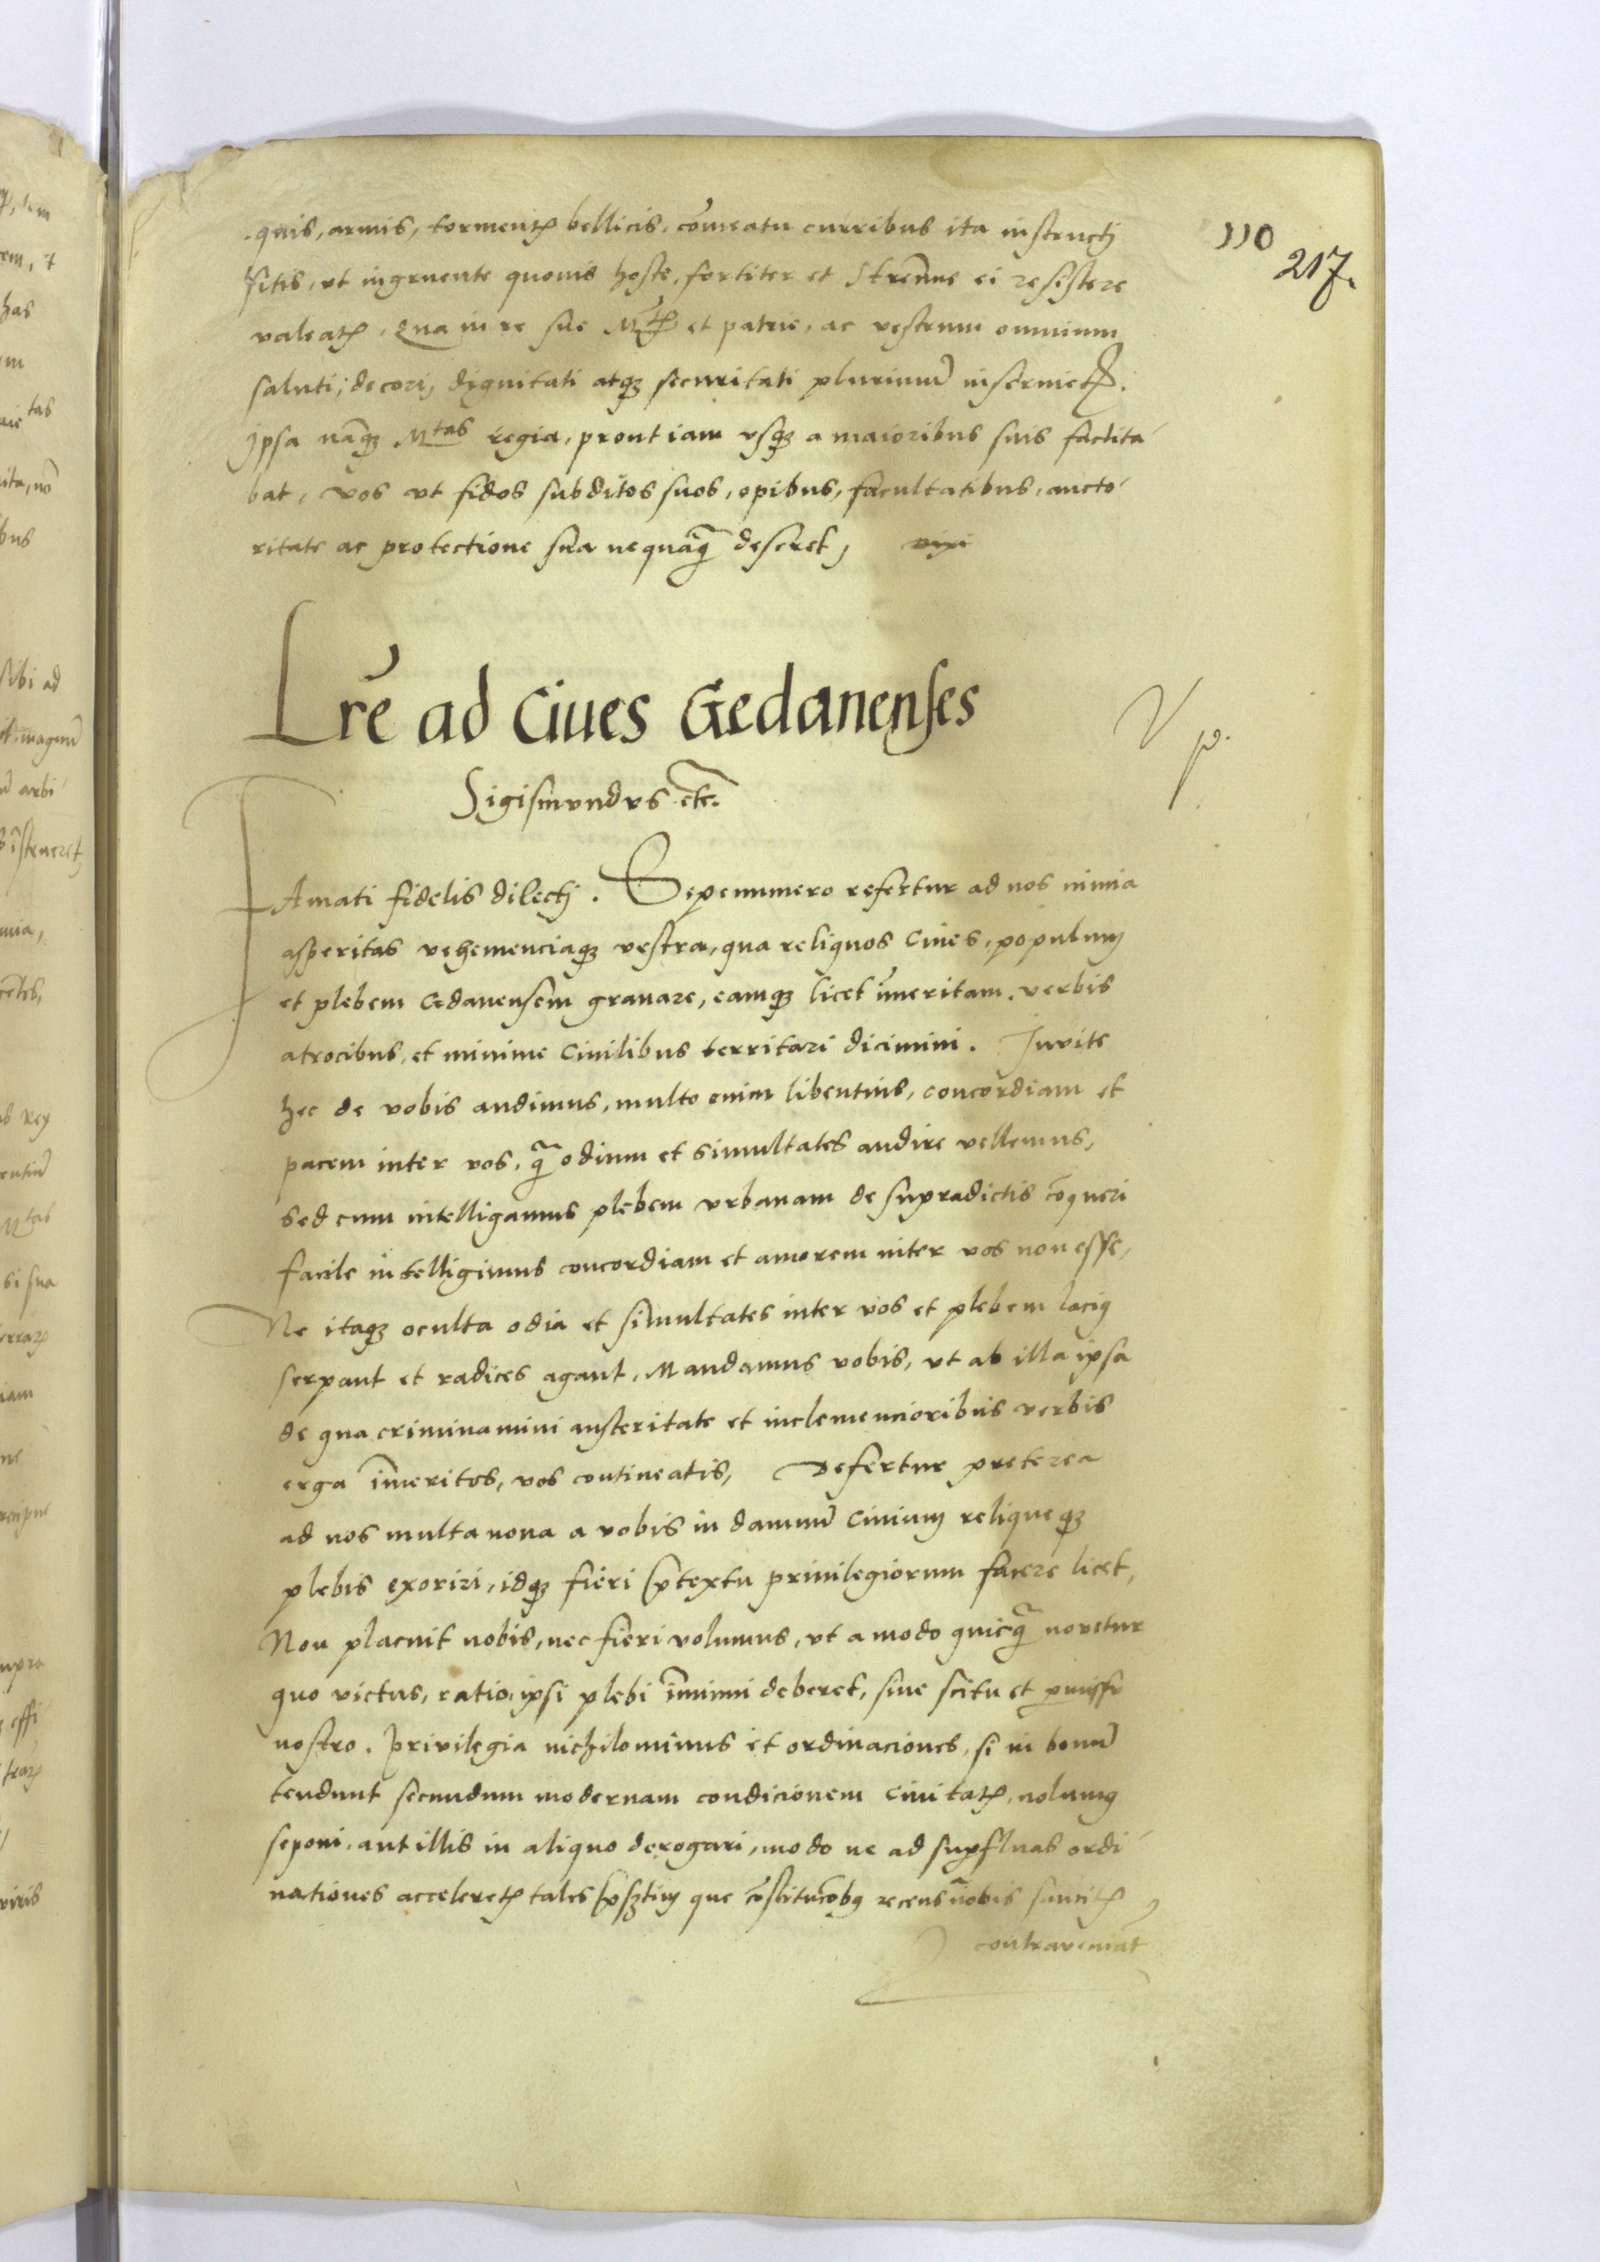 110
217.
quis, armis, tormentꝭ bellicis, cōmeatu curribus ita instructj
sitis, vt ingruente quouis hoste, fortiter et Strenue ei resistere
valeatꝭ. Qua in re sue Mtꝭ et patrie, ac vestrum omnium
saluti, decori, dignitati atqꝫ securitati plurimū inseruietꝭ.
Ipsa nāqꝫ Mtas regia, prout iam vsqꝫ a maioribus suis factita
bat, vos vt fidos subditos suos, opibus, facultatibus, aucto
ritate ac protectione sua nequāq̄ deseret,
Lrē ad Ciues Gedanenses
V p.
Sigismundus etc.
Famati fidelis dilectj. Sepenumero refertur ad nos nimia
asperitas vehemenciaqꝫ vestra, qua reliquos Ciues, populum
et plebem Gedanensem grauare, eamqꝫ licet īmeritam, verbis
atrocibus, et minime Ciuilibus territari dicimini. Inuite
hec de vobis audimus, multo enim libentius, concordiam et
pacem inter vos, q̄ odium et simultates audire vellemus,
sed cum intelligamus plebem vrbanam de supradictis cōqueri
facile intelligimus concordiam et amorem inter vos non esse,
Ne itaqꝫ oculta odia et simultates inter vos et plebem lacius
serpant et radices agant, Mandamus vobis, vt ab illa ipsa
de qua criminamini austeritate et inclemencioribus verbis
erga īmeritos, vos contineatis, Defertur preterea
ad nos multa noua a vobis in damnū Ciuium reliqueqꝫ
plebis exoriri, idqꝫ fieri p̄textu priuilegiorum facere licet,
Non placuit nobis, nec fieri volumus, vt a modo quicq̄ nouetur
quo victus, ratio ipsi plebi īminui deberet, sine scitu et p̲missu
nostro. Priuilegia nichilominus et ordinaciones, si in bonū
tendunt secundum modernam condicionem Ciuitatꝭ, nolumus
seponi, aut illis in aliquo derogari, modo ne ad sup̲fluas ordi
nationes acceleretꝭ tales p̄sertim que cōstitucōibꝫ recens a nobis sancitꝭ
contraueniāt